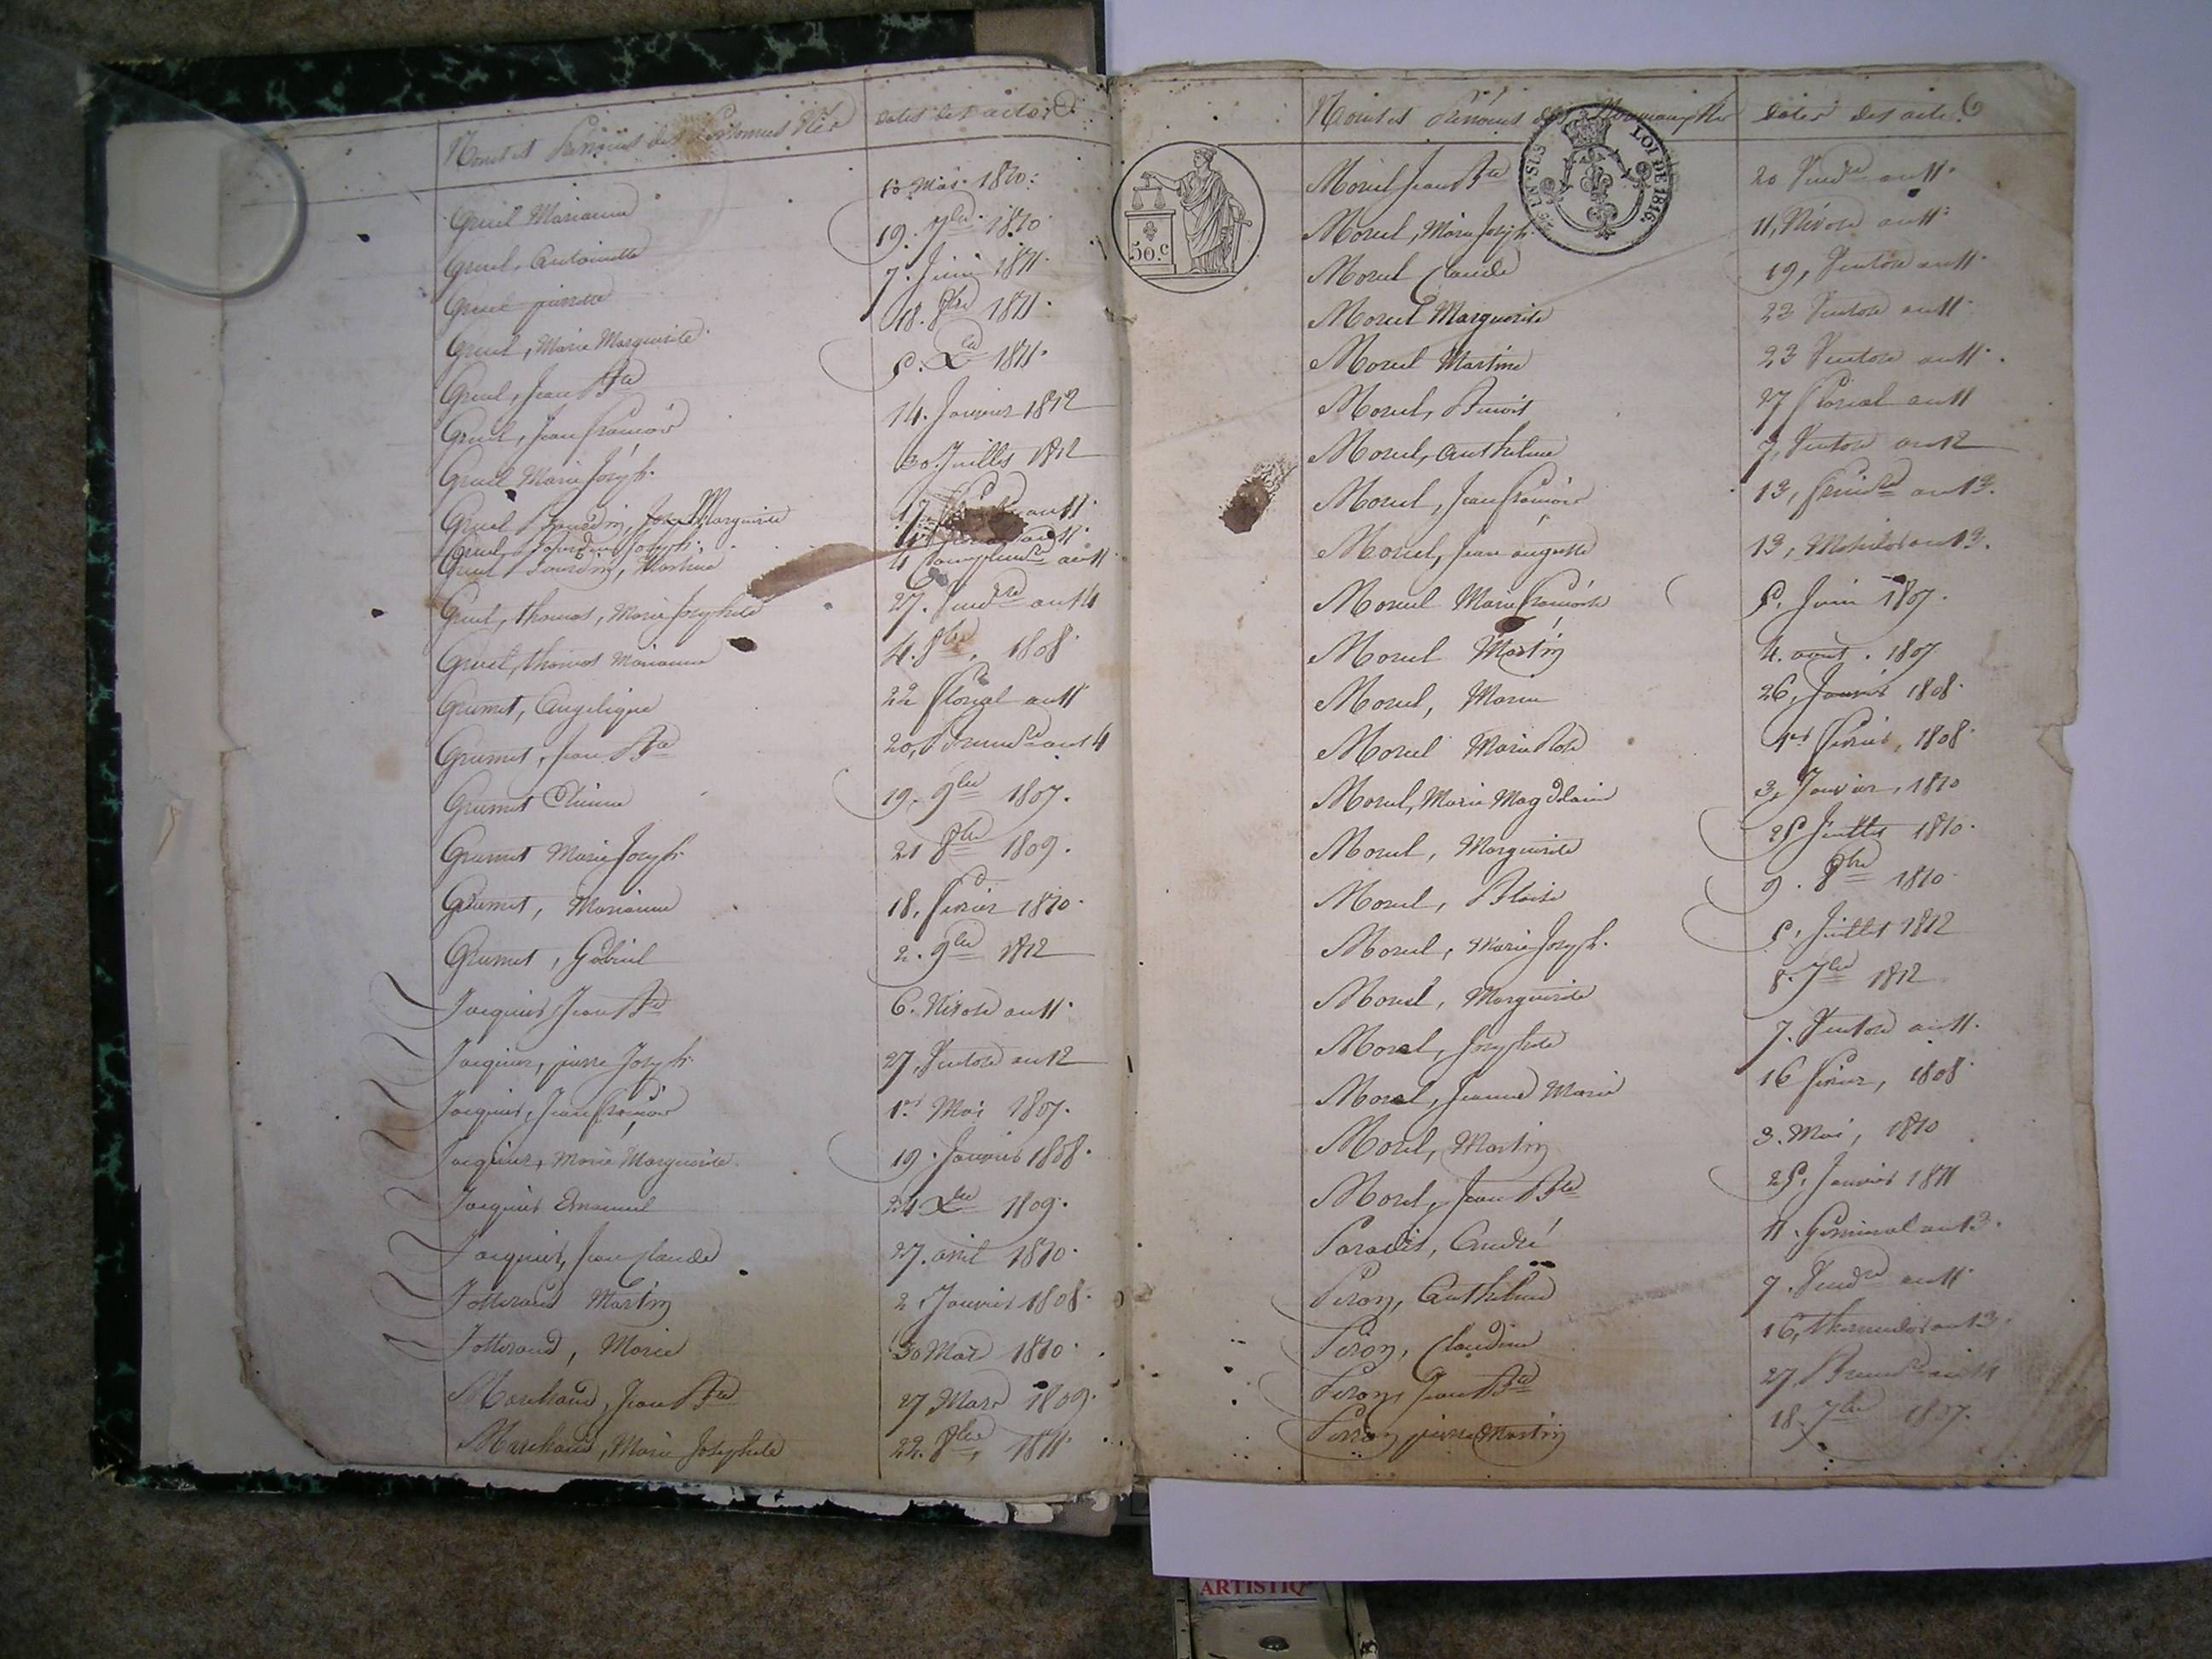 Noms et Prénoms des Personnes Nés
Dates des actes
Gruel Marianne
10 Mai 1810.
Gruel, Antoinette
19. 7bre 1810
Gruel pierrette
7. Juin 1811.
Gruel, Marie Marguerite
18. 8bre 1811.
Gruel, Jean Bte
5. Xbre 1811.
Gruel, Jean françois
14. Janvier 1812
Gruel Marie Joseph.
30. Juillet 1812
Gruel Bourdin, Marguerite
17 an 11.
Gruel, Bourdin Joseph.
an 11.
Gruel Bourdin, Martine
4 Complemre an 11
Gruel, thomas, Marie Josephte
27. Vendre an 14
Gruel, thomas Marianne
4. 8bre, 1808
Grumet, Angelique
22 floréal an 11
Grumet, Jean Bte
20, Brumre an 14
Grumet Etienne
19. 9bre 1807.
Grumet Marie Joseph.
21 8bre 1809.
Grumet, Marianne
18. fevrier 1810.
Grumet, Gabriel
2. 9bre 1812
Jacquier Jean Bte
6. Nivose an 11.
Jacquier, pierre Joseph.
27, Ventose an 12
Jacquier, Jean françois
1er Mai 1807.
Jacquier, Marie Marguerite
19. Janvier 1808.
Jacquier Emanuel
24 Xbre 1809.
Jacquier, Jean Claude
27. avril 1810.
Jotterand Martin
2 Janvier 1808.
Jotterand, Marie
30 Mars 1810.
Marchand, Jean Bte
27 Mars 1809.
Marchand, Marie Josephte
22. 8bre, 1811
50. C
Noms et Prénoms des Nouveaux Nés
Dates des actes
6
EN SUS
LOI DE 1816
Morel Jean Bte
20 Vendre an 11.
Morel, Marie Joseph.
11, Nivose an 11.
Morel Claude
19, Ventose an 11.
Morel Marguerite
23 Ventose an 11.
Morel Martine
23 Ventose an 11.
Morel, Benoit
27 floreal an 11
Morel, Anthelme
7, Ventose an 12
Morel, Jean françois
13, frimre an 13.
Morel, Jean auguste
13, Messidor an 13.
Morel Marie françoise
5. Juin 1807.
Morel Martin
4. aout. 1807
Morel, Marie
26, Janvier 1808.
Morel Marie Rose
1er fevrier, 1808.
Morel, Marie Magdelaine
3, Janvier, 1810
Morel, Marguerite
25 Juillet 1810.
Morel, Blaise
9. 8bre 1810
Morel, Marie Joseph.
5, Juillet 1812
Morel, Marguerite
8. 7bre 1812
Morel, Josephte
7. Ventose an 11.
Morel, Jeanne Marie
16 fevrier, 1808.
Morel, Martin
3. Mai, 1810
Morel, Jean Bte
25, Janvier 1811
Paradis, André
11. Germinal an 13.
Peron, Anthelme
7. Vendre an 11.
Peron, Claudine
16, thermidor an 13.
Peron, Jean Bte
27, Brumre an 14
Perron pierre Martin
18. 7bre 1807.
ARTISTIQ